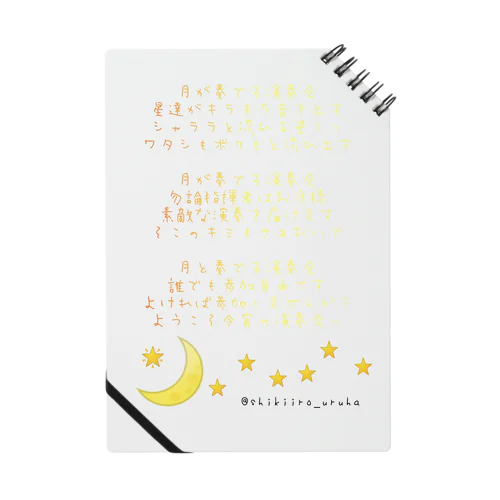 月が奏でる演奏会
星達がキラキラ
シャララと流れる
ワタシもボクも
月が奏でる演奏会
勿論指揮者はお月様
素敵な演奏を届けます
そこのキミも
月と奏でる演奏会
誰でも参加自由です
よければ参加
ようこそ今宵の演奏会へ
@shikiiro_uruha